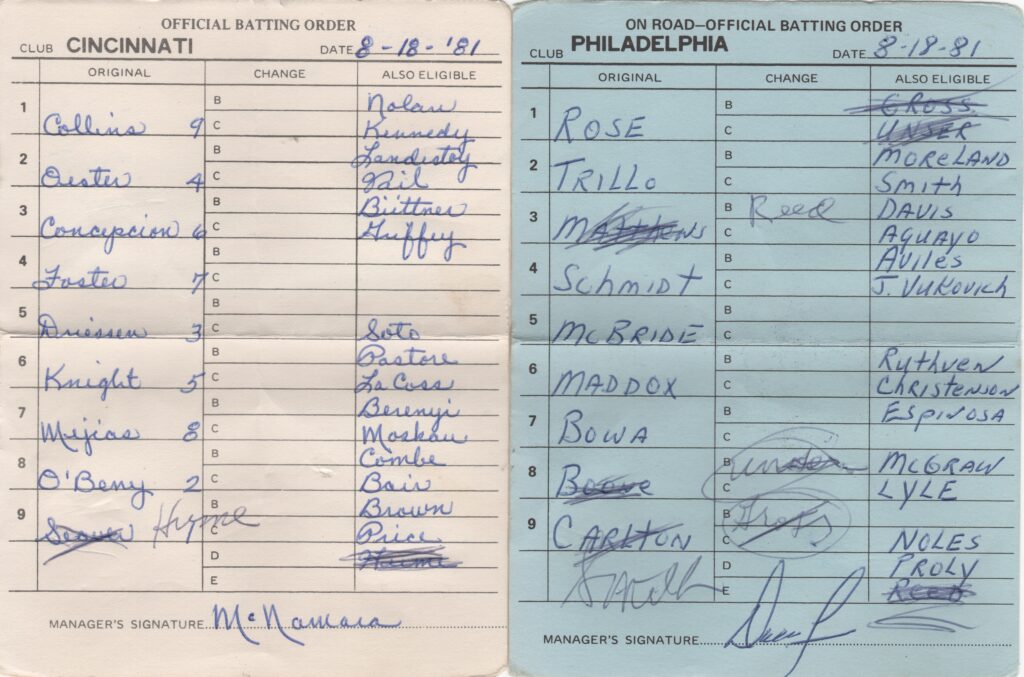 OFFICIAL BATTING ORDER
CLUB CINCINNATI DATE 8-18-'81
ORIGINAL CHANGE ALSO ELIGIBLE
B Nolan
1 Collins 9 C Kennedy
B Landestoy
2 Oester 4 C
B Biittner
3 Concepcion 6 C Guffey
4 Foster 7 B
C
5 Driessen 3 B
C Soto
B Pastore
6 Knight 5 C LaCoss
B Berenyi
7 Mejias 8 C Moskau
B Combe
8 O'Beny 2 C Bair
B Brown
9 Seaver Hume 1 C Price
D Hume
E
MANAGER'S SIGNATURE McNamara
ON ROAD—OFFICIAL BATTING ORDER
CLUB PHILADELPHIA DATE 8-18-81
ORIGINAL CHANGE ALSO ELIGIBLE
B GROSS
1 ROSE C UNSER
B MORELAND
2 TRILLO C Smith
B Reed DAVIS
3 MATTHEWS C AGUAYO
B AVILES
4 SchmidT C J. VUKOVICH
5 McBRIDE B
C
B RUThVEN
6 MADDOX C ChRISTENSON
B ESPINOSA
7 BOWA C
B Unser McGRAW
8 Boone C LYLE
B Gross
9 CARLTON C NOLES
Smith D PROLY
E REED
MANAGER'S SIGNATURE